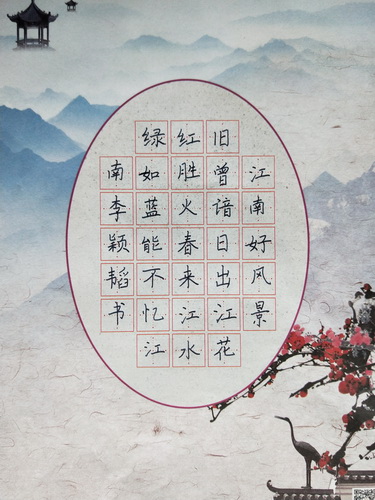 江南好风景
旧曾谙日出江花
红胜火春来江水
绿如蓝能不忆江
南李颖韬书